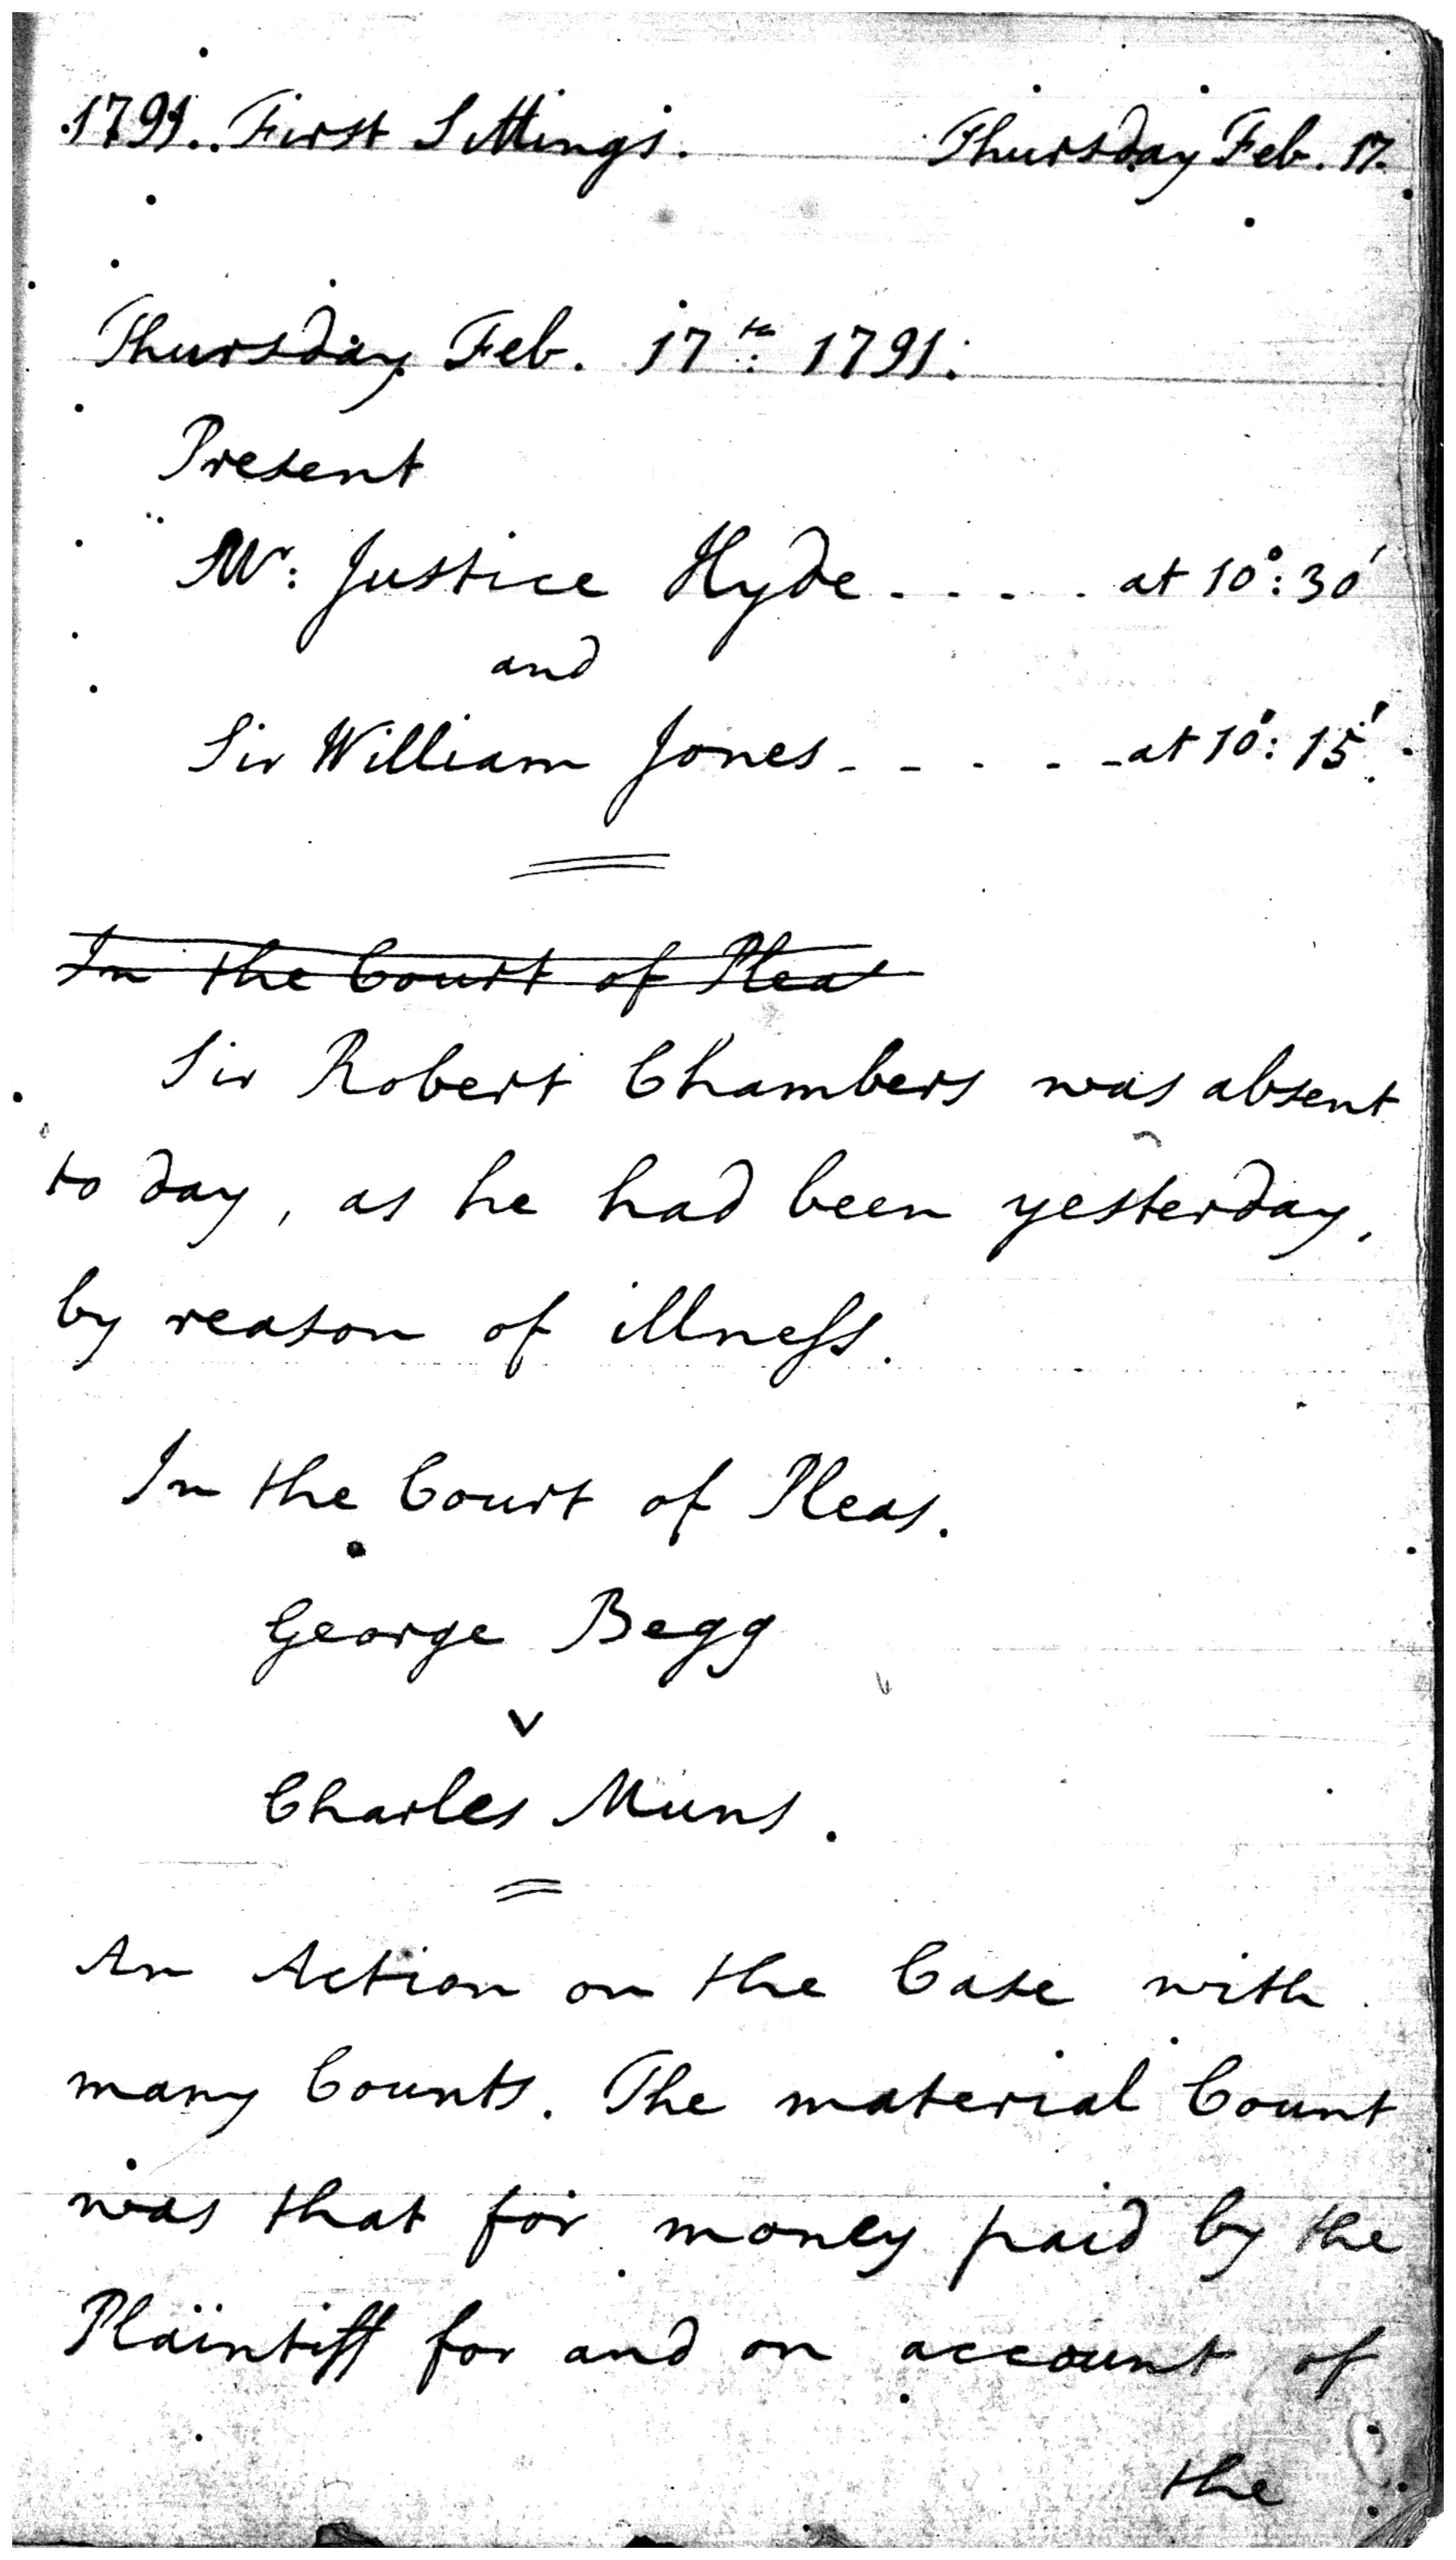 1791. First Sittings. Thursday Feb. 17.
Thursday Feb. 17th: 1791.
Present
Mr: Justice Hyde . . . . at 10°: 30'
and
Sir William Jones - - - - - at 10°: 15'.
In the Court of Pleas
Sir Robert Chambers was absent
to day, as he had been yesterday,
by reason of illness.
In the Court of Pleas.
George Begg
v
Charles Muns.
An Action on the Case with
many Counts. The material Count
was that for money paid by the
Plaintiff for and on account of
the